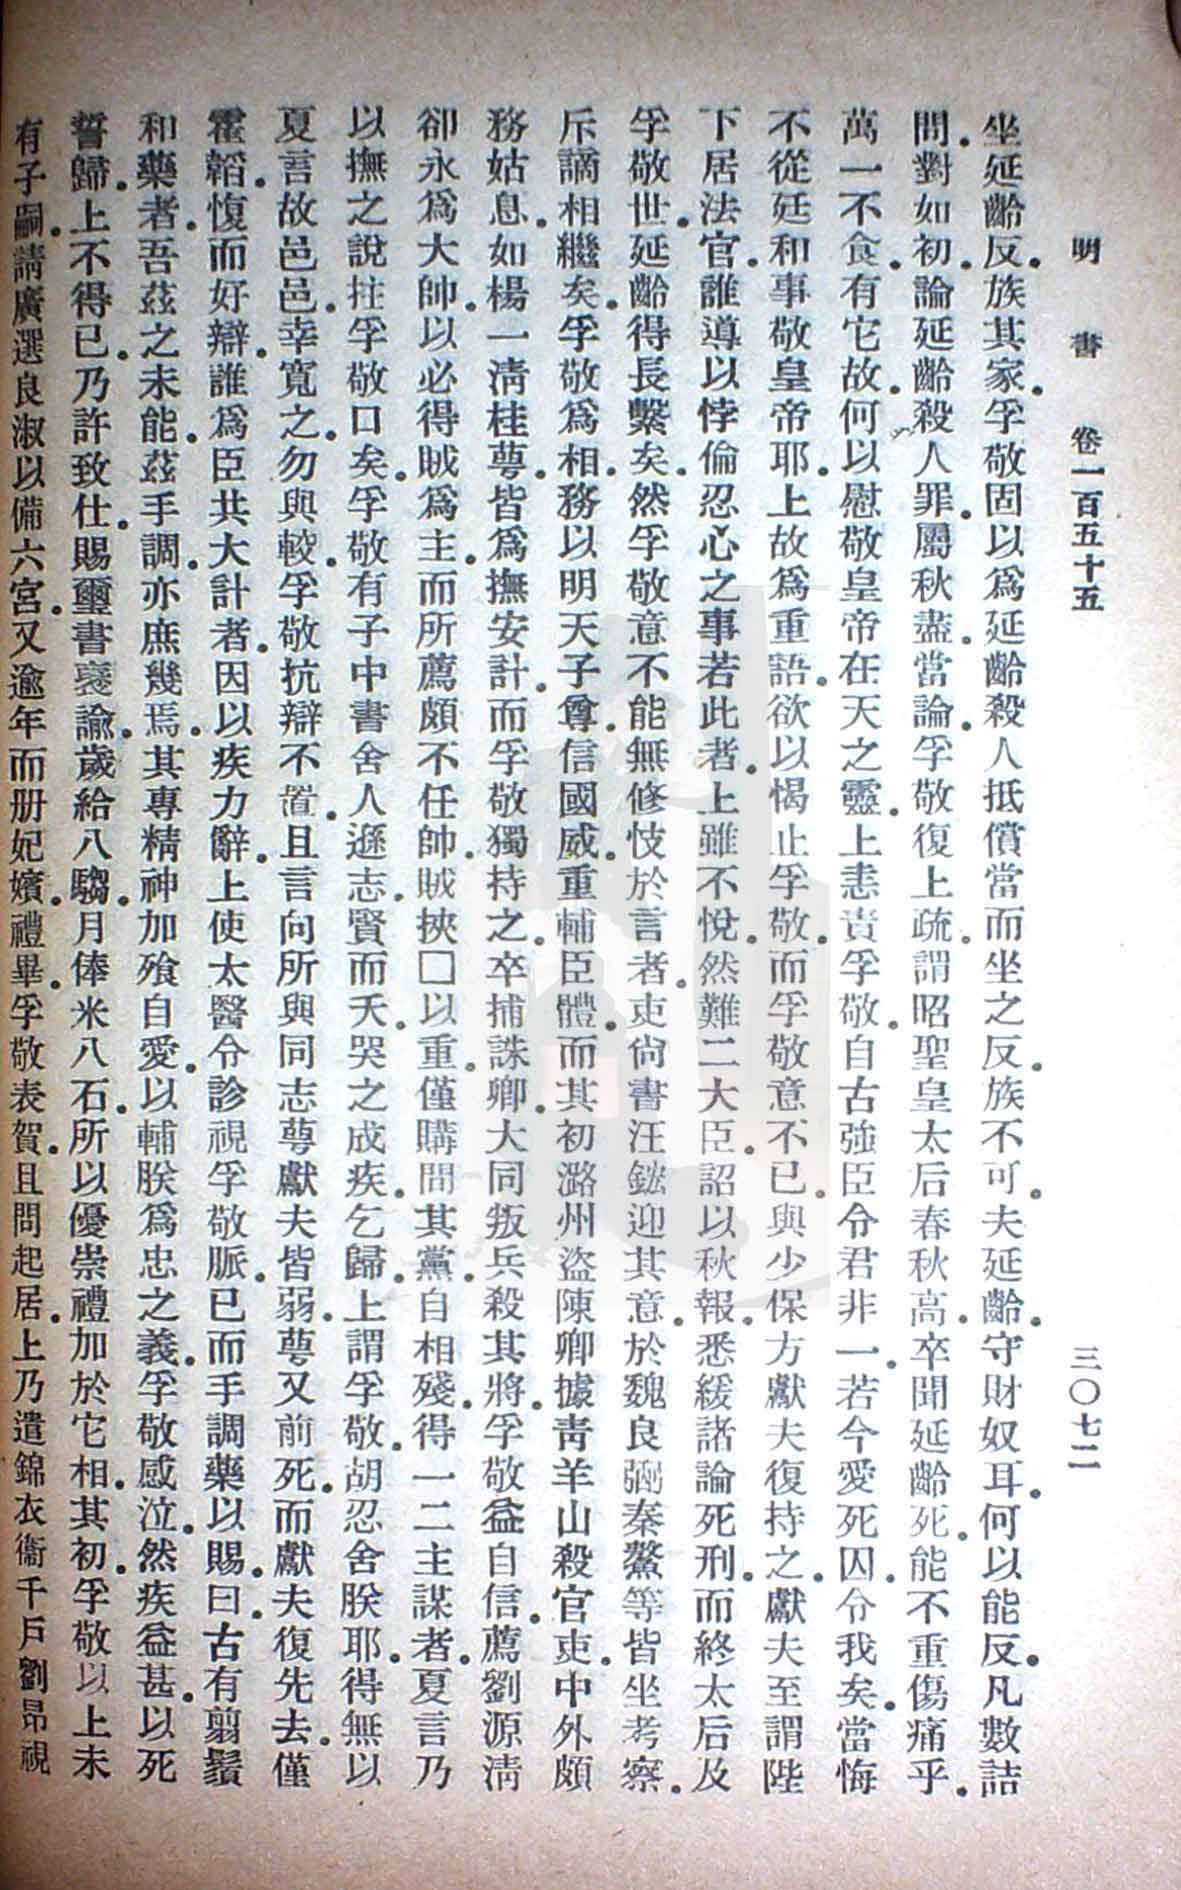 明書　卷一百五十五　三〇七二
坐延齡反。族其家。孚敬固以爲延齡殺人抵償當而坐之反。族不可。夫延齡。守財奴耳。何以能反。凡數詰
問。對如初。論延齡殺人罪。屬秋盡。當論。孚敬復上疏。謂昭聖皇太后春秋高。卒聞延齡死。能不重傷痛乎。
萬一不食。有它故。何以慰敬皇帝在天之靈。上恚責孚敬。自古強臣令君非一。若今愛死囚。令我矣。當悔
不從廷和事敬皇帝耶。上故爲重語。欲以愒止孚敬。而孚敬意不已。與少保方獻夫復持之。獻夫至謂陛
下居法官。誰導以悖倫忍心之事若此者。上雖不悅。然難二大臣。詔以秋報。悉緩諸論死刑。而終太后及
孚敬世。延齡得長繫矣。然孚敬意不能無修忮於言者。吏尙書汪鋐迎其意。於魏良弼秦鰲等皆坐考察。
斥謫相繼矣。孚敬爲相。務以明天子尊。信國威。重輔臣體。而其初潞州盜陳卿據靑羊山殺官吏。中外頗
務姑息。如楊一淸桂萼。皆爲撫安計。而孚敬獨持之。卒捕誅卿。大同叛兵殺其將。孚敬益自信。薦劉源淸
卻永爲大帥。以必得賊爲主。而所薦頗不任帥。賊挾□以重。僅購間其黨。自相殘。得一二主謀者。夏言乃
以撫之說拄孚敬口矣。孚敬有子中書舍人遜志。賢而夭。哭之成疾。乞歸。上謂孚敬。胡忍舍朕耶。得無以
夏言故邑邑。幸寬之。勿與較。孚敬抗辯不置。且言向所與同志萼獻夫皆弱。萼又前死。而獻夫復先去。僅
霍韜。愎而好辯。誰爲臣共大計者。因以疾力辭。上使太醫令診視孚敬脈。已而手調藥以賜。曰。古有翦鬚
和藥者。吾茲之未能。茲手調。亦庶幾焉。其專精神加飧自愛。以輔朕爲忠之義。孚敬感泣。然疾益甚。以死
誓歸。上不得已。乃許致仕。賜璽書褒諭。歲給八騶。月俸米八石。所以優崇禮加於它相。其初。孚敬以上未
有子嗣。請廣選良淑以備六宮。又逾年而册妃嬪。禮畢。孚敬表賀。且問起居。上乃遣錦衣衞千戶劉昂視